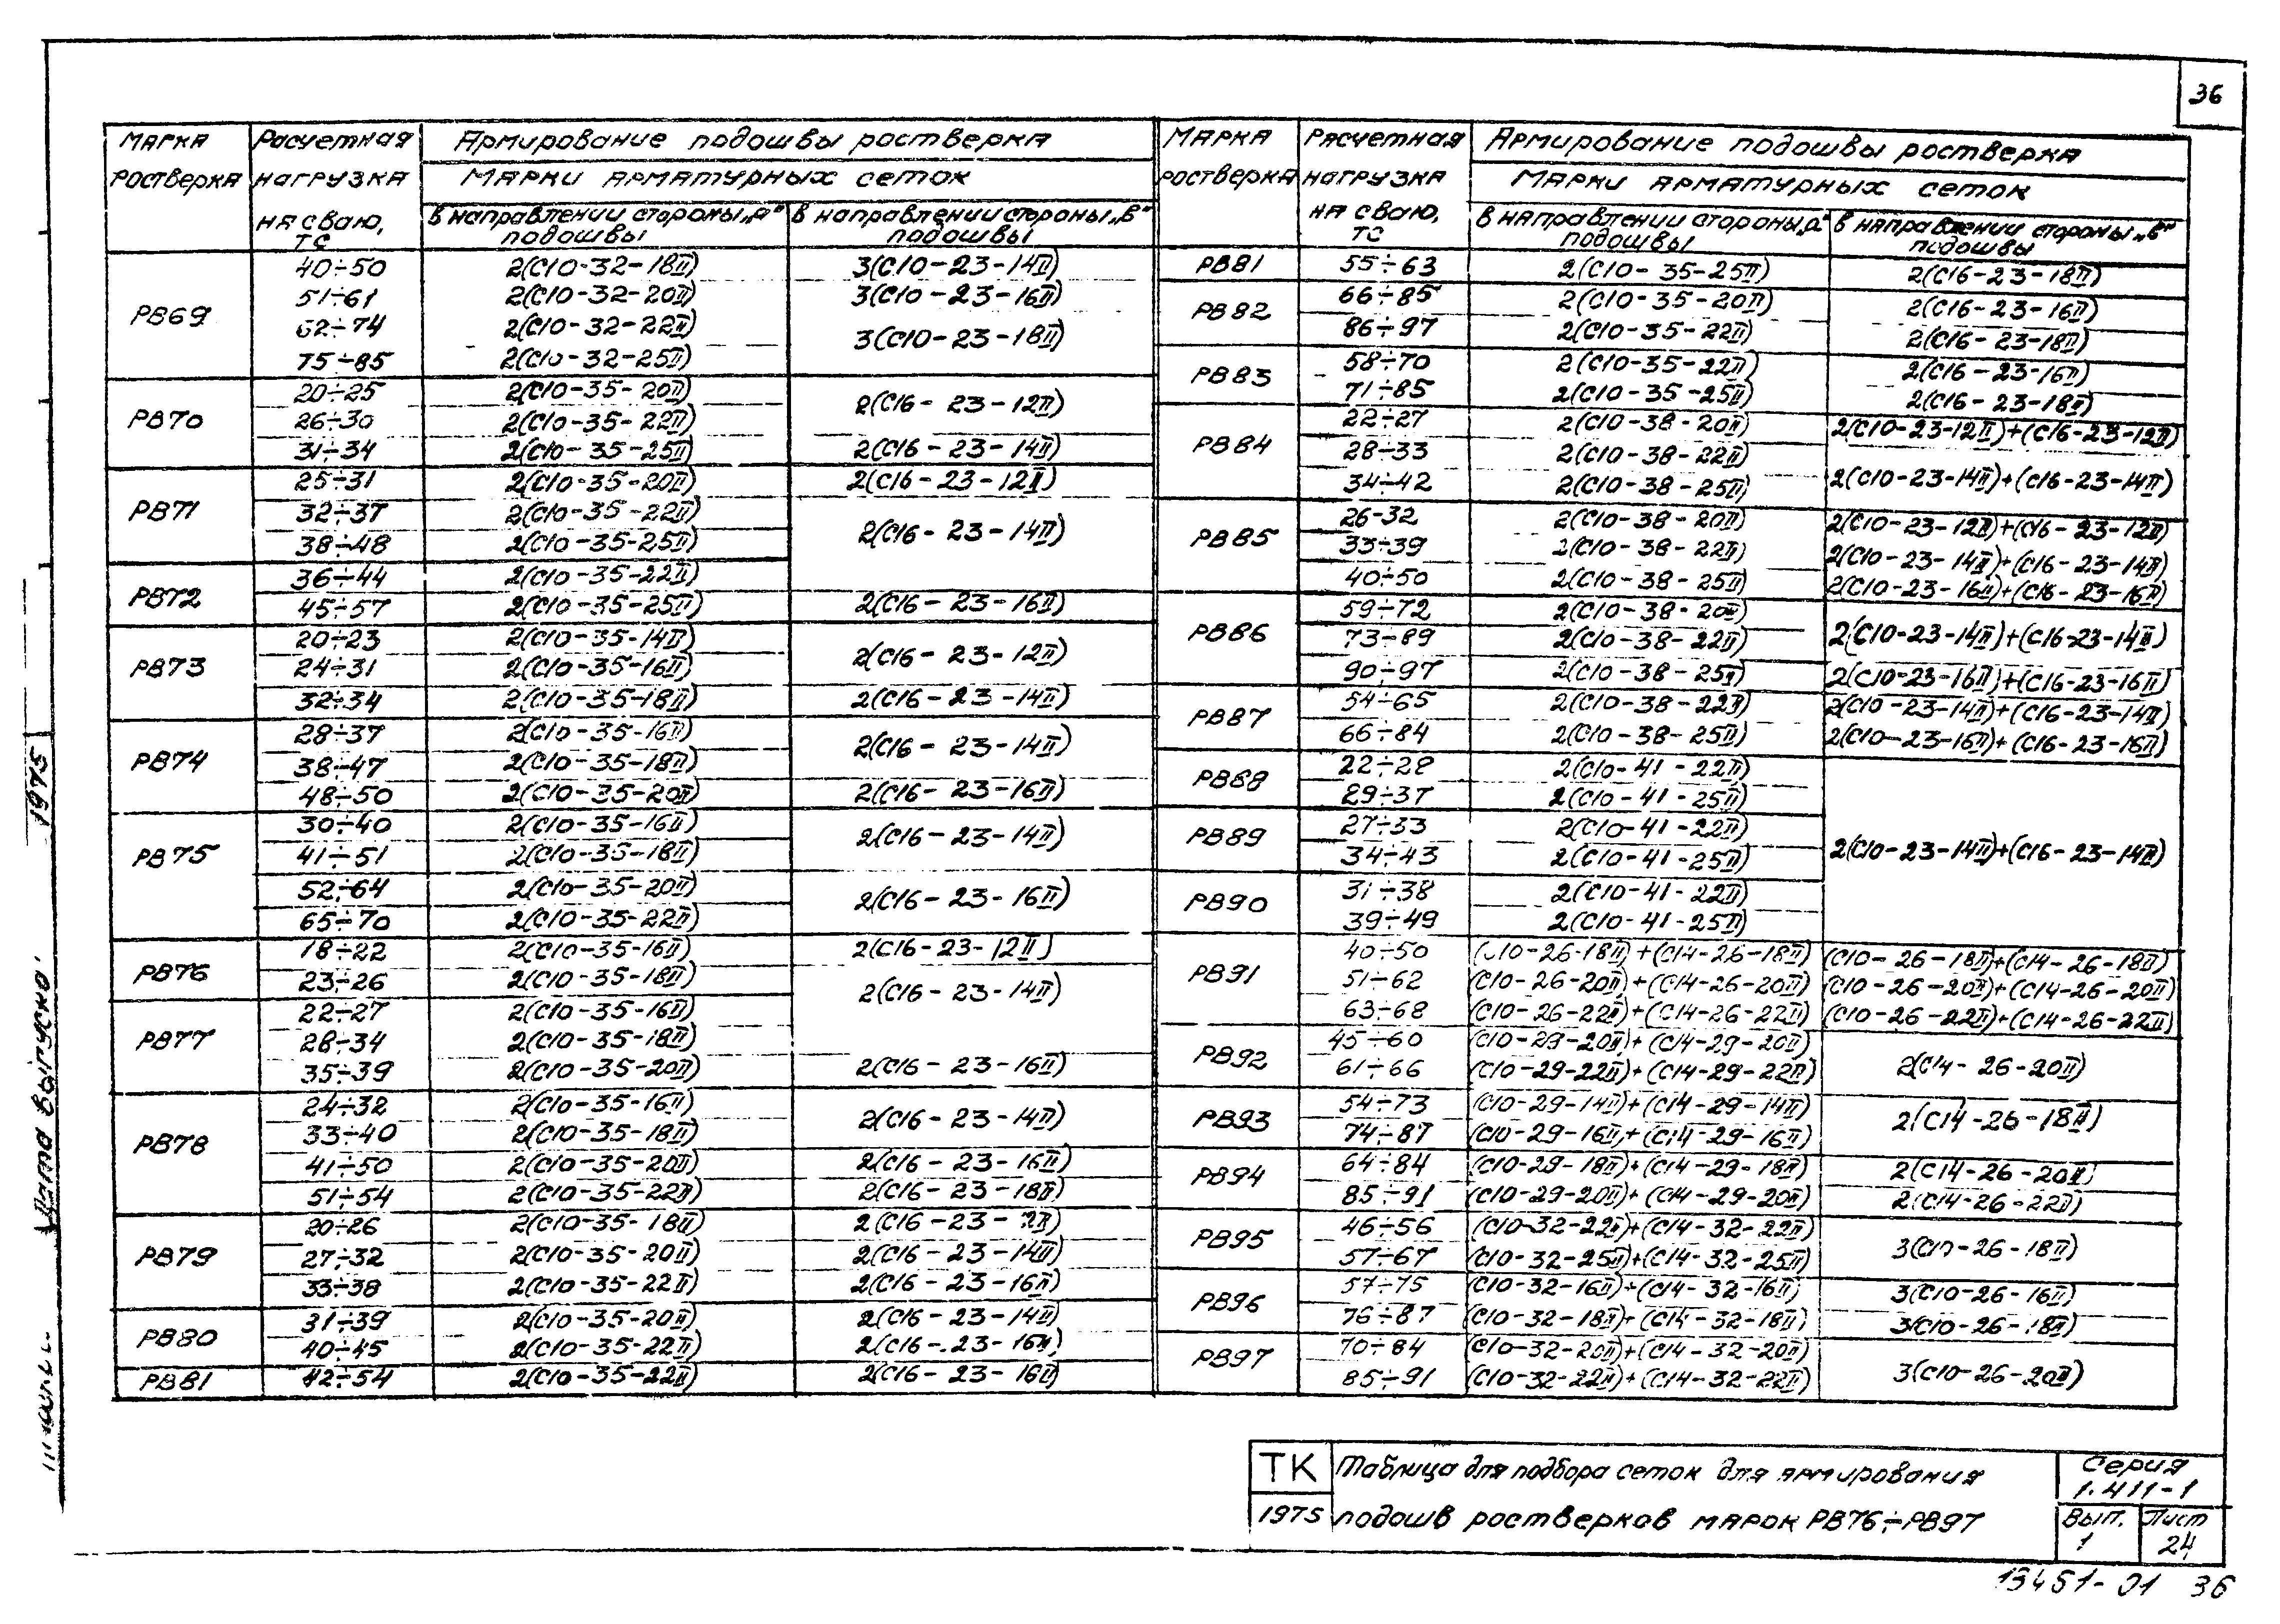 36
Марка ростверка
Расчетная нагрузка на сваю, тс
Армирование подошвы ростверка
Марки арматурных сеток
в направлении стороны „а" подошвы
в направлении стороны „в" подошвы
РВ69
40÷50 2(С10-32-18II) 3(С10-23-14II)
51÷61 2(С10-32-20II) 3(С10-23-16II)
62÷74 2(С10-32-22II) 3(С10-23-18II)
75÷85 2(С10-32-25II)
РВ70
20÷25 2(С10-35-20II) 2(С16-23-12II)
26÷30 2(С10-35-22II)
31÷34 2(С10-35-25II) 2(С16-23-14II)
РВ71
25÷31 2(С10-35-20II) 2(С16-23-12II)
32÷37 2(С10-35-22II) 2(С16-23-14II)
38÷48 2(С10-35-25II)
РВ72
36÷44 2(С10-35-22II)
45÷57 2(С10-35-25II) 2(С16-23-16II)
РВ73
20÷23 2(С10-35-14II) 2(С16-23-12II)
24÷31 2(С10-35-16II)
32÷34 2(С10-35-18II) 2(С16-23-14II)
РВ74
28÷37 2(С10-35-16II) 2(С16-23-14II)
38÷47 2(С10-35-18II)
48÷50 2(С10-35-20II) 2(С16-23-16II)
РВ75
30÷40 2(С10-35-16II) 2(С16-23-14II)
41÷51 2(С10-35-18II)
52÷64 2(С10-35-20II) 2(С16-23-16II)
65÷70 2(С10-35-22II)
РВ76
18÷22 2(С10-35-16II) 2(С16-23-12II)
23÷26 2(С10-35-18II) 2(С16-23-14II)
РВ77
22÷27 2(С10-35-16II)
28÷34 2(С10-35-18II)
35÷39 2(С10-35-20II) 2(С16-23-16II)
РВ78
24÷32 2(С10-35-16II) 2(С16-23-14II)
33÷40 2(С10-35-18II)
41÷50 2(С10-35-20II) 2(С16-23-16II)
51÷54 2(С10-35-22II) 2(С16-23-18II)
РВ79
20÷26 2(С10-35-18II) 2(С16-23-2II)
27÷32 2(С10-35-20II) 2(С16-23-14II)
33÷38 2(С10-35-22II) 2(С16-23-16II)
РВ80
31÷39 2(С10-35-20II) 2(С16-23-14II)
40÷45 2(С10-35-22II) 2(С16-23-16II)
РВ81 42÷54 2(С10-35-22II) 2(С16-23-16II)
Марка ростверка
Расчетная нагрузка на сваю, тс
Армирование подошвы ростверка
Марки арматурных сеток
в направлении стороны „а" подошвы
в направлении стороны „в" подошвы
РВ81 55÷63 2(С10-35-25II) 2(С16-23-18II)
РВ82
66÷85 2(С10-35-20II) 2(С16-23-16II)
86÷97 2(С10-35-22II) 2(С16-23-18II)
РВ83
58÷70 2(С10-35-22II) 2(С16-23-16II)
71÷85 2(С10-35-25II) 2(С16-23-18II)
РВ84
22÷27 2(С10-38-20II) 2(С10-23-12II)+(С16-23-12II)
28÷33 2(С10-38-22II) 2(С10-23-14II)+(С16-23-14II)
34÷42 2(С10-38-25II)
РВ85
26-32 2(С10-38-20II) 2(С10-23-12II)+(С16-23-12II)
33÷39 2(С10-38-22II) 2(С10-23-14II)+(С16-23-14II)
40÷50 2(С10-38-25II) 2(С10-23-16II)+(С16-23-16II)
РВ86
59÷72 2(С10-38-20II) 2(С10-23-14II)+(С16-23-14II)
73÷89 2(С10-38-22II)
90÷97 2(С10-38-25II) 2(С10-23-16II)+(С16-23-16II)
РВ87
54÷65 2(С10-38-22II) 2(С10-23-14II)+(С16-23-14II)
66÷84 2(С10-38-25II) 2(С10-23-16II)+(С16-23-16II)
РВ88
22÷28 2(С10-41-22II)
29÷37 2(С10-41-25II)
РВ89
27÷33 2(С10-41-22II)
34÷43 2(С10-41-25II) 2(С10-23-14II)+(С16-23-14II)
РВ90
31÷38 2(С10-41-22II)
39÷49 2(С10-41-25II)
РВ91
40÷50 (С10-26-18II)+(С14-26-18II) (С10-26-18II)+(С14-26-18II)
51÷62 (С10-26-20II)+(С14-26-20II) (С10-26-20II)+(С14-26-20II)
63÷68 (С10-26-22II)+(С14-26-22II) (С10-26-22II)+(С14-26-22II)
РВ92
45÷60 (С10-29-20II)+(С14-29-20II) 2(С14-26-20II)
61÷66 (С10-29-22II)+(С14-29-22II)
РВ93
54÷73 (С10-29-14II)+(С14-29-14II) 2(С14-26-18II)
74÷87 (С10-29-16II)+(С14-29-16II)
РВ94
64÷84 (С10-29-18II)+(С14-29-18II) 2(С14-26-20II)
85÷91 (С10-29-20II)+(С14-29-20II) 2(С14-26-22II)
РВ95
46÷56 (С10-32-22II)+(С14-32-22II) 3(С10-26-18II)
57÷67 (С10-32-25II)+(С14-32-25II)
РВ96
57÷75 (С10-32-16II)+(С14-32-16II) 3(С10-26-16II)
76÷87 (С10-32-18II)+(С14-32-18II) 3(С10-26-18II)
РВ97
70÷84 (С10-32-20II)+(С14-32-20II) 3(С10-26-20II)
85÷91 (С10-32-22II)+(С14-32-22II)
Дата выпуска 1975
ТК
1975
Таблица для подбора сеток для армирования
подошв ростверков марок РВ76÷РВ97
Серия
1.411-1
Вып.
1
Лист
24
13451-01 36